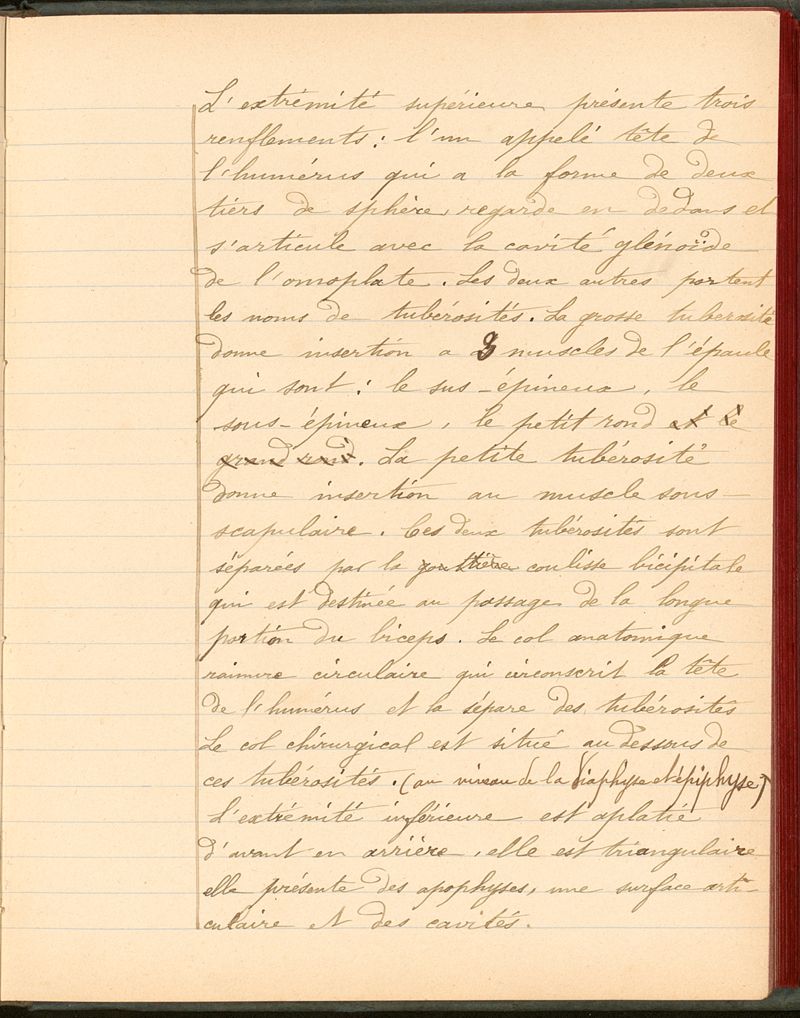 L'extrémité supérieure présente trois
renflements : l'un appelé tête de
l'humérus qui a la forme de deux
tiers de sphère, regarde en dedans et
s'articule avec la cavité glénoïde
de l'omoplate. Les deux autres portent
les noms de tubérosités. La grosse tuberosité
donne insertion a 3 muscles de l'épaule
qui sont : le sus-épineux, le
sous-épineux, le petit rond et le
grand rond. La petite tubérosité
donne insertion au muscle sous-
scapulaire. Ces deux tubérosités sont
séparées par la gouttière coulisse bicipitale
qui est destinée au passage de la longue
portion du biceps. Le col anatomique
rainure circulaire qui circonscrit la tête
de l'humérus et la sépare des tubérosités
Le col chirurgical est situé au dessous de
ces tubérosités. (au niveau de la diaphyse et épiphyse)
L'extrémité inférieure est aplatie
d'avant en arrière, elle est triangulaire
elle présente des apophyses, une surface arti-
culaire et des cavités.